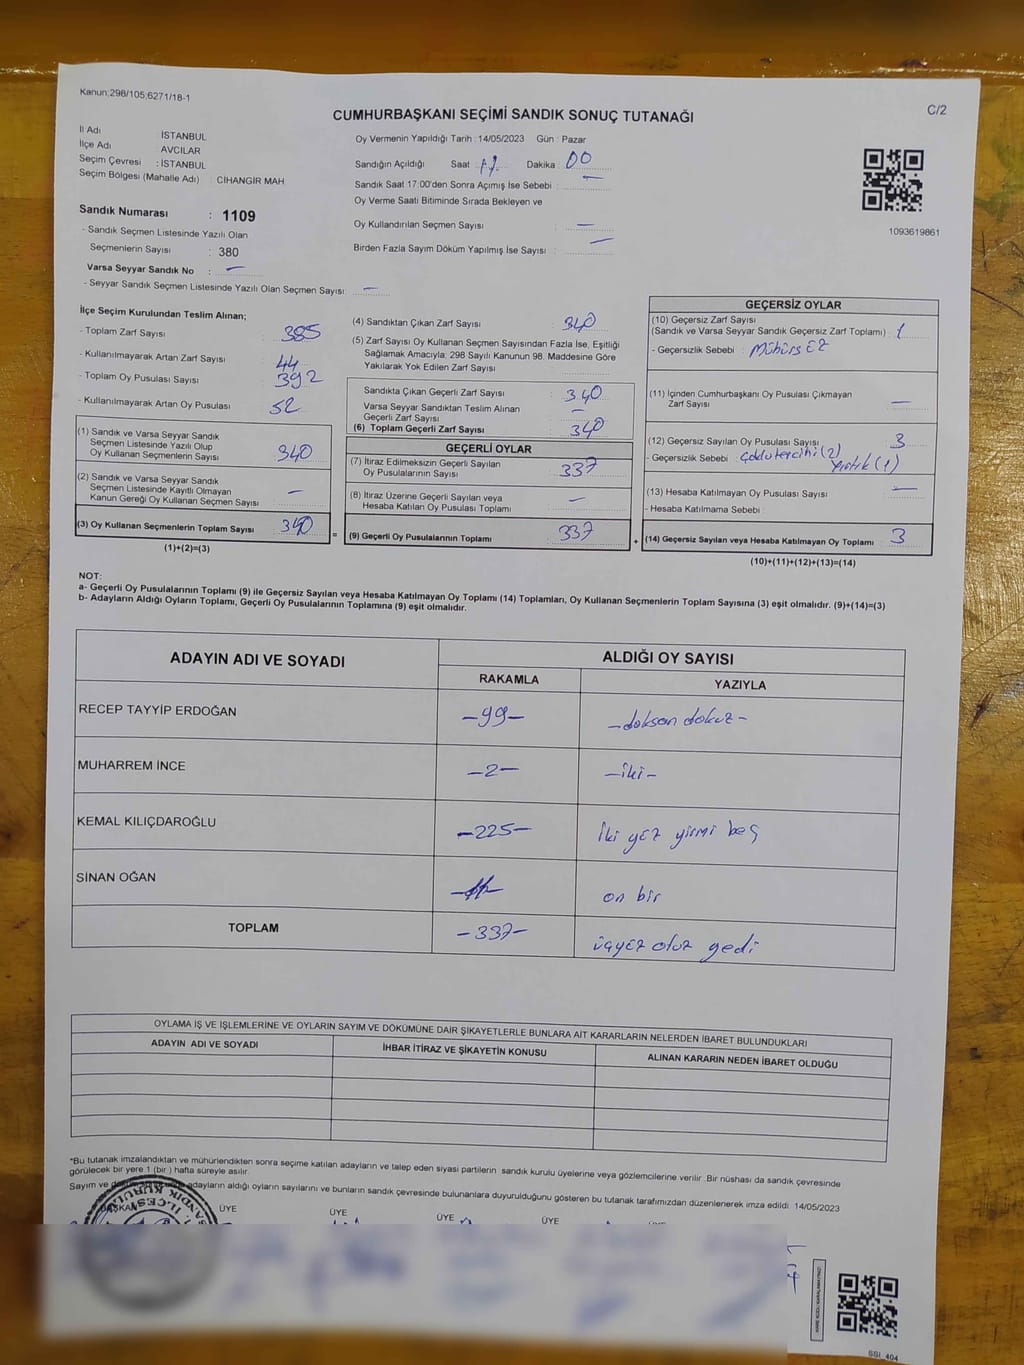 Kanun:298/105;6271/18-1
C/2
CUMHURBAŞKANI SEÇİMİ SANDIK SONUÇ TUTANAĞI
İl Adı : İSTANBUL
İlçe Adı AVCILAR
Seçim Çevresi : İSTANBUL
Seçim Bölgesi (Mahalle Adı) : CİHANGİR MAH
Oy Vermenin Yapıldığı Tarih : 14/05/2023 Gün : Pazar
Sandığın Açıldığı Saat : 17. Dakika : 00
Sandık Saat 17:00'den Sonra Açımış İse Sebebi : —
Oy Verme Saati Bitiminde Sırada Bekleyen ve
Oy Kullandırılan Seçmen Sayısı : —
Birden Fazla Sayım Döküm Yapılmış İse Sayısı : —
1093619861
Sandık Numarası : 1109
- Sandık Seçmen Listesinde Yazılı Olan
Seçmenlerin Sayısı : 380
Varsa Seyyar Sandık No : —
- Seyyar Sandık Seçmen Listesinde Yazılı Olan Seçmen Sayısı: —
İlçe Seçim Kurulundan Teslim Alınan;
- Toplam Zarf Sayısı 385
- Kullanılmayarak Artan Zarf Sayısı 44
- Toplam Oy Pusulası Sayısı 392
- Kullanılmayarak Artan Oy Pusulası 52
(1) Sandık ve Varsa Seyyar Sandık
Seçmen Listesinde Yazılı Olup
Oy Kullanan Seçmenlerin Sayısı 340
(2) Sandık ve Varsa Seyyar Sandık
Seçmen Listesinde Kayıtlı Olmayan
Kanun Gereği Oy Kullanan Seçmen Sayısı —
(3) Oy Kullanan Seçmenlerin Toplam Sayısı 340
(1)+(2)=(3)
(4) Sandıktan Çıkan Zarf Sayısı 340
(5) Zarf Sayısı Oy Kullanan Seçmen Sayısından Fazla İse, Eşitliği
Sağlamak Amacıyla; 298 Sayılı Kanunun 98. Maddesine Göre
Yakılarak Yok Edilen Zarf Sayısı
Sandıkta Çıkan Geçerli Zarf Sayısı : 340
Varsa Seyyar Sandıktan Teslim Alınan
Geçerli Zarf Sayısı : —
(6) Toplam Geçerli Zarf Sayısı 340
=
GEÇERLİ OYLAR
(7) İtiraz Edilmeksizin Geçerli Sayılan
Oy Pusulalarının Sayısı : 337
(8) İtiraz Üzerine Geçerli Sayılan veya
Hesaba Katılan Oy Pusulası Toplamı —
(9) Geçerli Oy Pusulalarının Toplamı 337
+
GEÇERSİZ OYLAR
(10) Geçersiz Zarf Sayısı
(Sandık ve Varsa Seyyar Sandık Geçersiz Zarf Toplamı) : 1
- Geçersizlik Sebebi : Mühürsüz
(11) İçinden Cumhurbaşkanı Oy Pusulası Çıkmayan
Zarf Sayısı —
(12) Geçersiz Sayılan Oy Pusulası Sayısı 3
- Geçersizlik Sebebi : çoklu tercihi (2)
yırtık (1)
(13) Hesaba Katılmayan Oy Pusulası Sayısı —
- Hesaba Katılmama Sebebi :
(14) Geçersiz Sayılan veya Hesaba Katılmayan Oy Toplamı 3
(10)+(11)+(12)+(13)=(14)
NOT:
a- Geçerli Oy Pusulalarının Toplamı (9) ile Geçersiz Sayılan veya Hesaba Katılmayan Oy Toplamı (14) Toplamları, Oy Kullanan Seçmenlerin Toplam Sayısına (3) eşit olmalıdır. (9)+(14)=(3)
b- Adayların Aldığı Oyların Toplamı, Geçerli Oy Pusulalarının Toplamına (9) eşit olmalıdır.
ADAYIN ADI VE SOYADI ALDIĞI OY SAYISI
RAKAMLA YAZIYLA
RECEP TAYYİP ERDOĞAN -99- -doksan dokuz-
MUHARREM İNCE -2- -iki-
KEMAL KILIÇDAROĞLU -225- iki yüz yirmi beş
SİNAN OĞAN -11- on bir
TOPLAM -337- üçyüz otuz yedi
OYLAMA İŞ VE İŞLEMLERİNE VE OYLARIN SAYIM VE DÖKÜMÜNE DAİR ŞİKAYETLERLE BUNLARA AİT KARARLARIN NELERDEN İBARET BULUNDUKLARI
ADAYIN ADI VE SOYADI İHBAR İTİRAZ VE ŞİKAYETİN KONUSU ALINAN KARARIN NEDEN İBARET OLDUĞU
*Bu tutanak imzalandıktan ve mühürlendikten sonra seçime katılan adayların ve talep eden siyasi partilerin sandık kurulu üyelerine veya gözlemcilerine verilir. Bir nüshası da sandık çevresinde
görülecek bir yere 1 (bir ) hafta süreyle asılır.
Sayım ve adayların aldığı oyların sayılarını ve bunların sandık çevresinde bulunanlara duyurulduğunu gösteren bu tutanak tarafımızdan düzenlenerek imza edildi. 14/05/2023
BAŞKAN ÜYE ÜYE ÜYE ÜYE
SSİ_404